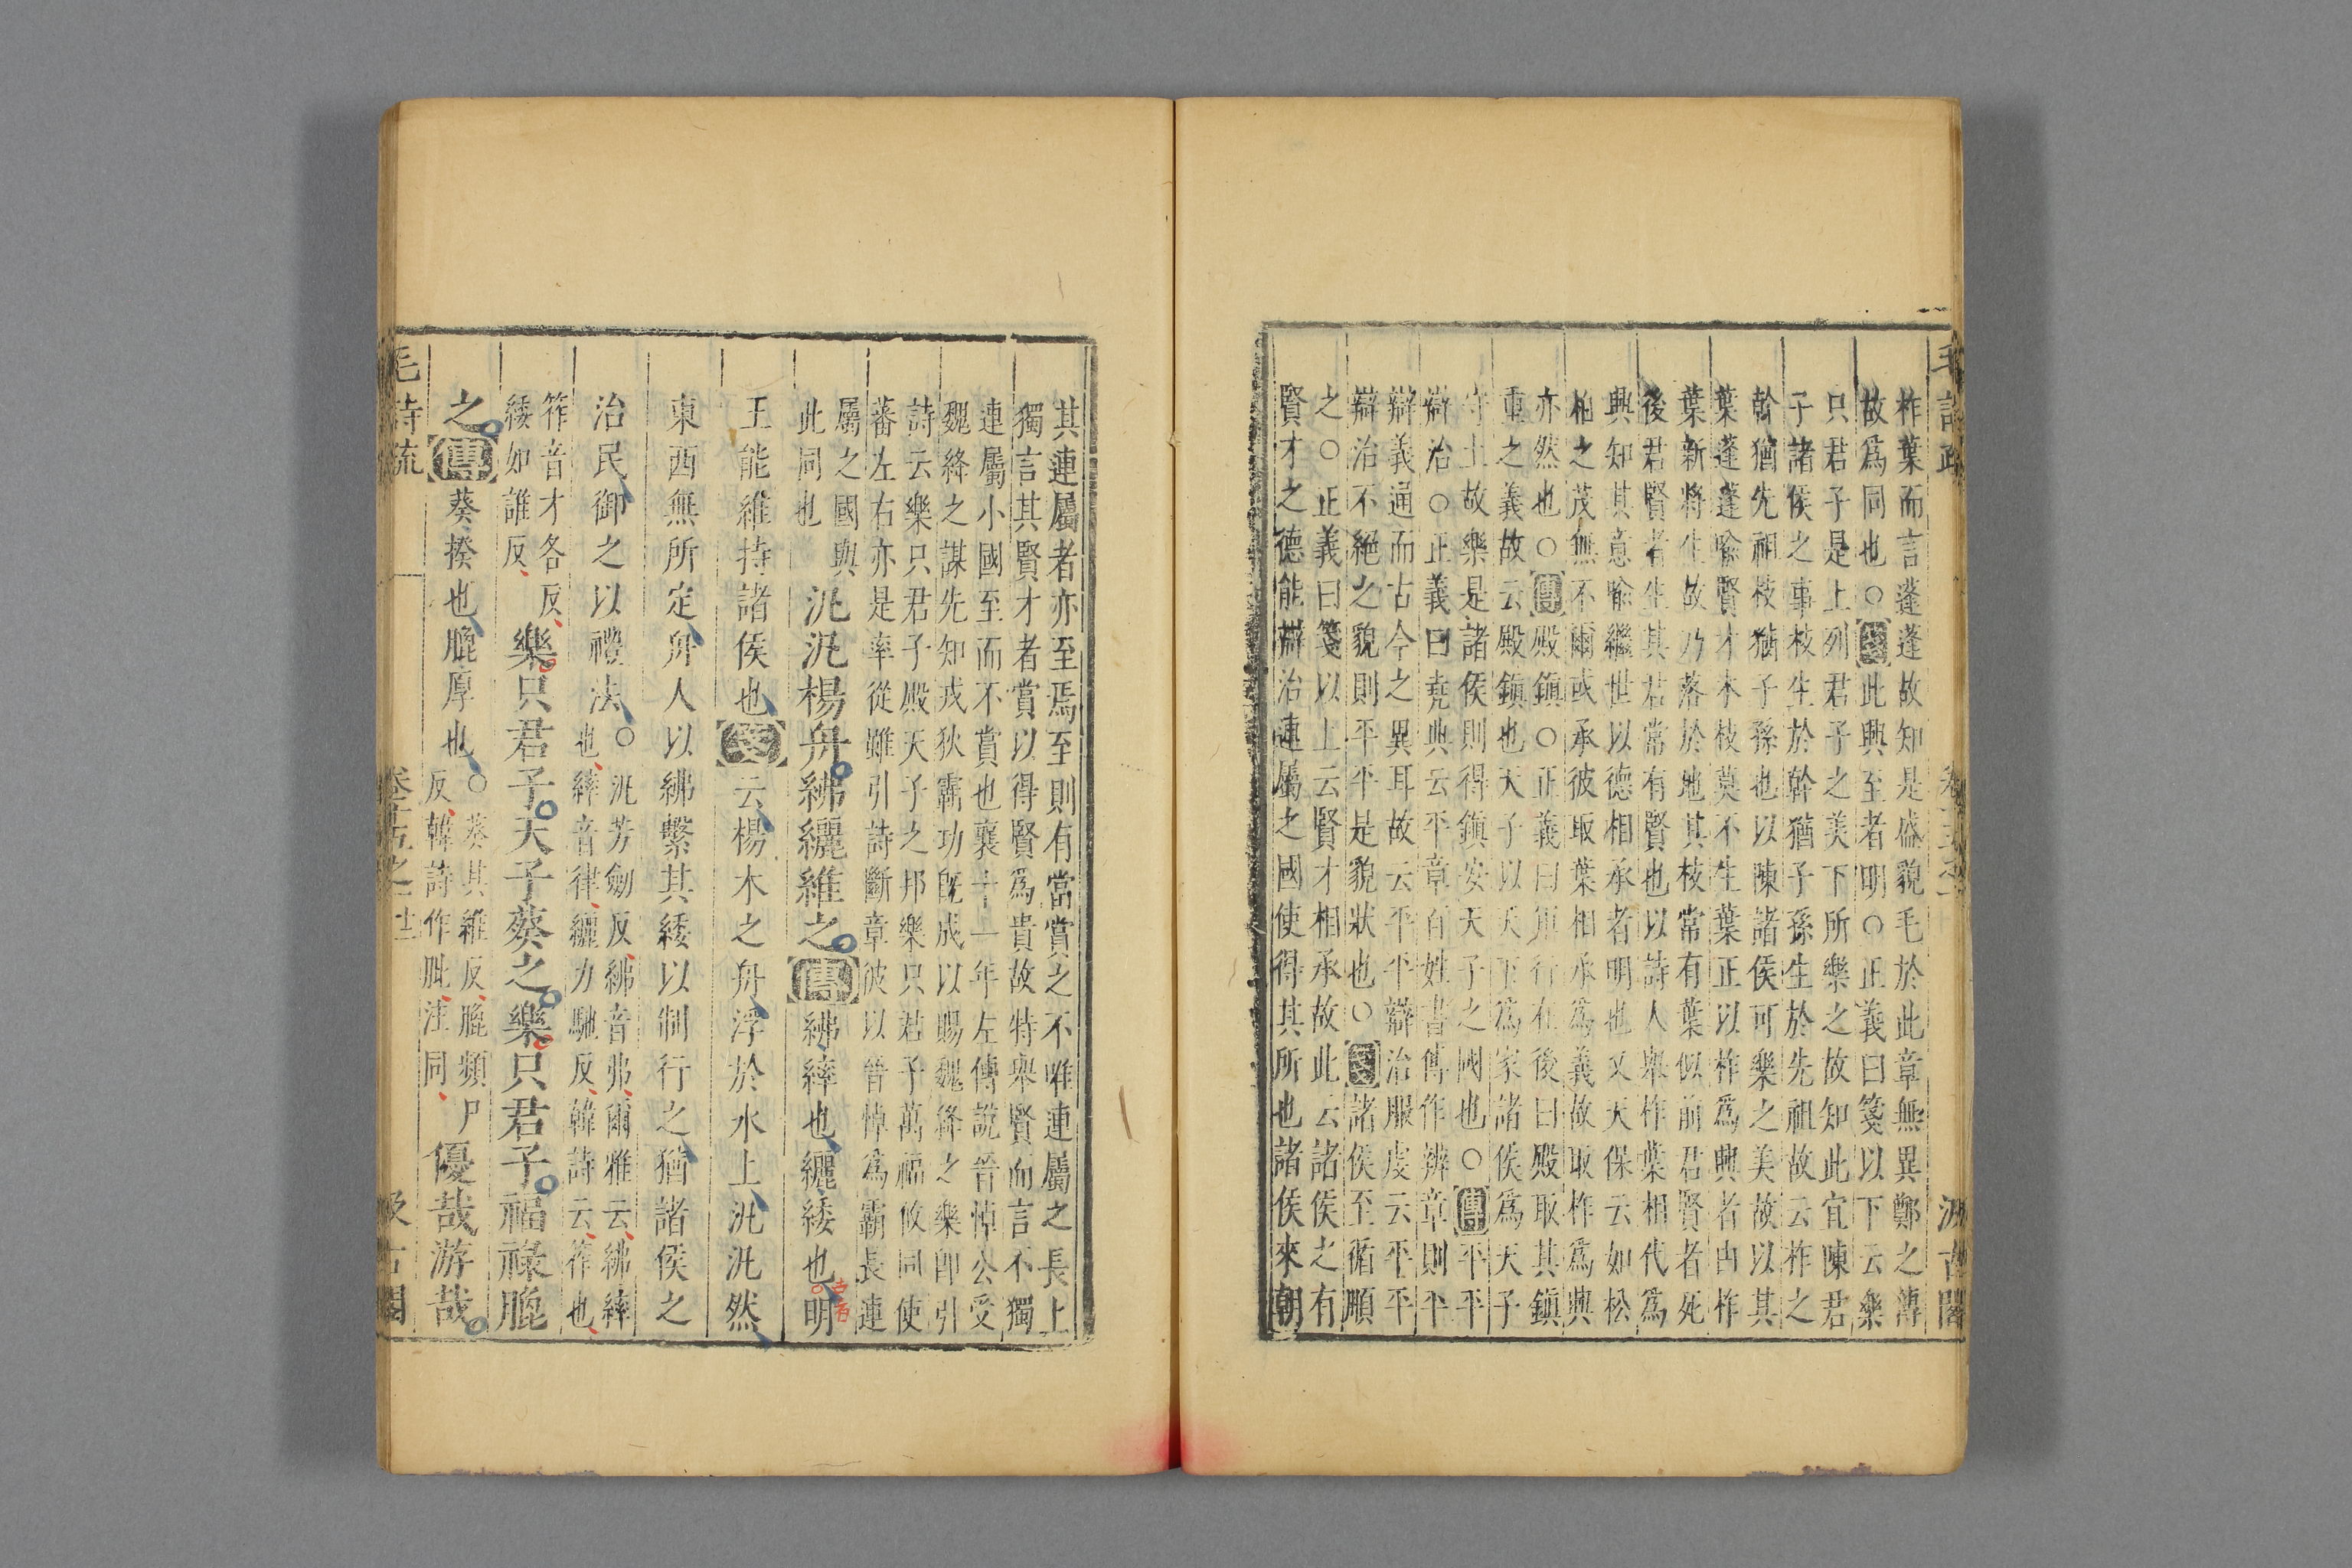 毛詩疏 卷十五之一 汲古閣
柞葉而言蓬蓬故知是盛貌毛於此章無異鄭之傳
故爲同也○箋此興至者明○正義曰箋以下云樂
只君子是上列君子之美下所樂之故知此宜陳君
子諸侯之事枝生於幹猶子孫生於先祖故云柞之
幹猶先祖枝猶子孫也以陳諸侯可樂之美故以其
葉蓬蓬喻賢才本枝莫不生葉正以柞爲興者由柞
葉新將生故乃落於地其枝常有葉似前君賢者死
後君賢者生其君常有賢也以詩人舉柞葉相代爲
興知其意喻繼世以德相承者明也又天保云如松
柏之茂無不爾或承彼取葉相承爲義故取柞爲興
亦然也○傳殿鎮○正義曰軍行在後曰殿取其鎮
重之義故云殿鎮也天子以天下爲家諸侯爲天子
守土故樂是諸侯則得鎮安天子之國也○傳平平
辯治○正義曰堯典云平章百姓書傳作辨章則平
辯義通而古今之異耳故云平平辯治服虔云平平
辯治不絕之貌則平平是貌狀也○箋諸侯至循順
之○正義曰箋以上云賢才相承故此云諸侯之有
賢才之德能辯治連屬之國使得其所也諸侯來朝
其連屬者亦至焉至則有當賞之不唯連屬之長上
獨言其賢才者賞以得賢爲貴故特舉賢而言不獨
連屬小國至而不賞也襄十一年左傳說晉悼公受
魏絳之謀先知戎狄霸功旣成以賜魏絳之樂卽引
詩云樂只君子殿天子之邦樂只君子萬福攸同使
蕃左右亦是率從雖引詩斷章彼以晉悼爲霸長連
屬之國與
此同也
汎汎楊舟紼纚維之傳紼繂也纚緌也明
王能維持諸侯也箋云楊木之舟浮於水上汎汎然
東西無所定舟人以紼繫其緌以制行之猶諸侯之
治民御之以禮法○汎芳劒反紼音弗爾雅云紼繂
也繂音律纚力馳反韓詩云筰也
筰音才各反
緌如誰反
樂只君子天子葵之樂只君子福祿膍
之傳葵揆也膍厚也○葵其維反膍頻尸
反韓詩作肶注同
優哉游哉
毛詩疏 卷十五之一 廿 汲古閣